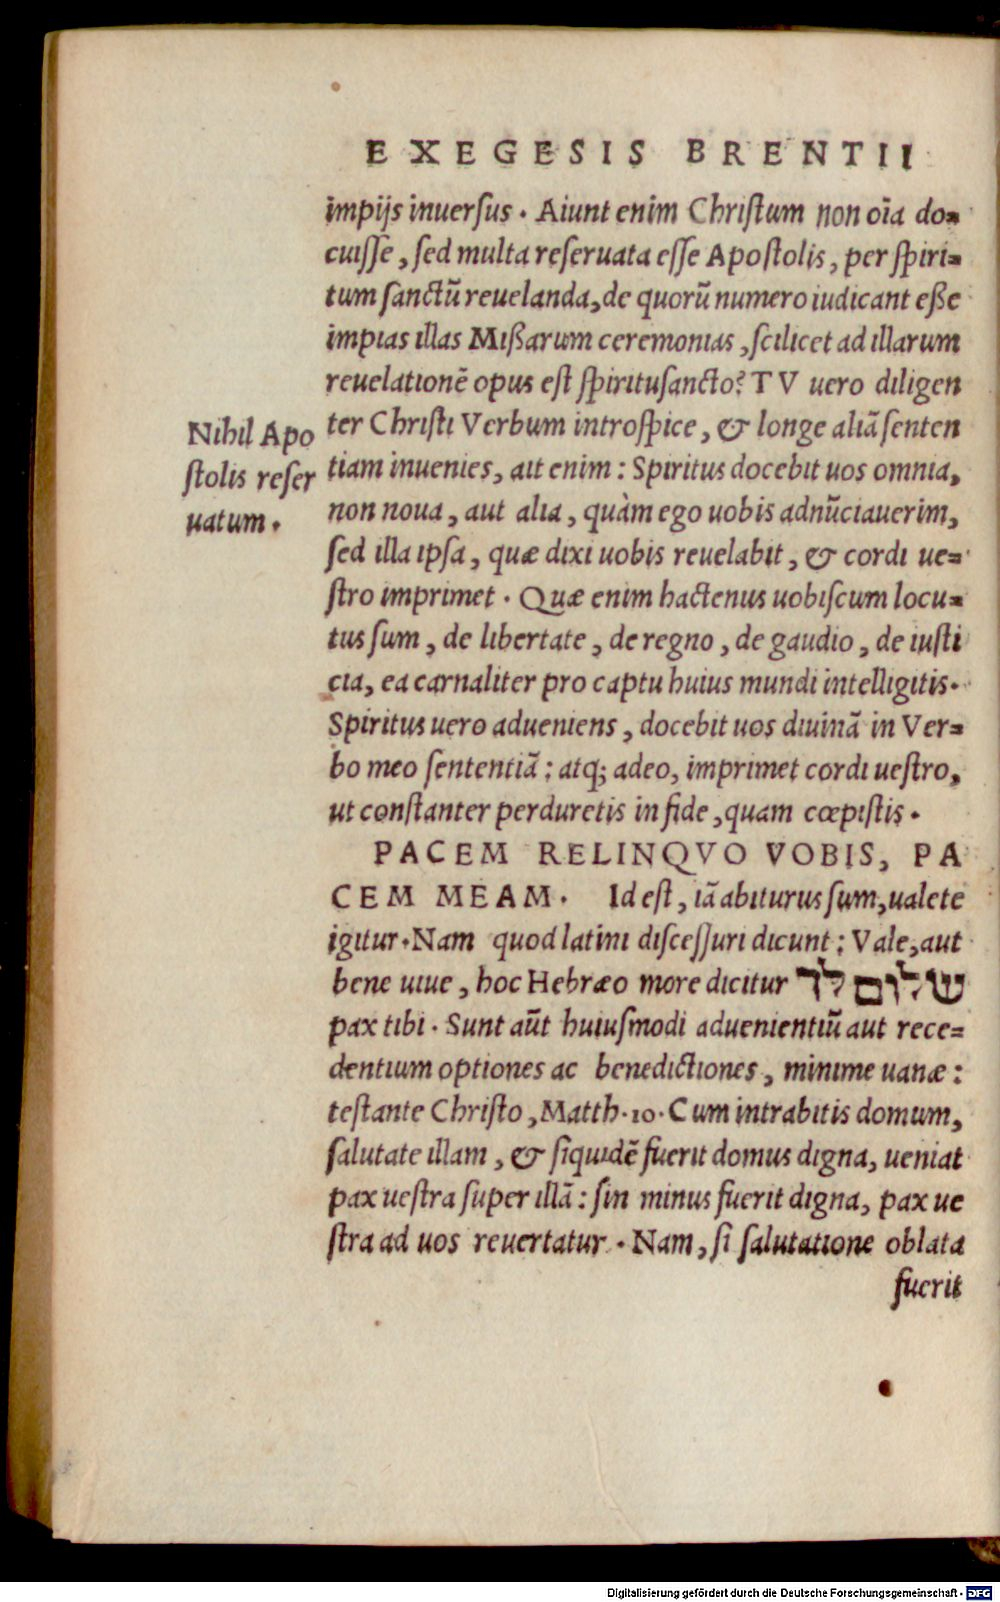 EXEGESIS BRENTII
impijs inuersus. Aiunt enim Christum non oīa do=
cuisse, sed multa reseruata esse Apostolis, per spiri=
tum sanctū reuelanda, de quorū numero iudicant eße
impias illas Mißarum ceremonias, scilicet ad illarum
reuelationē opus est spiritusancto? TV uero diligen
Nihil Apo
stolis reser
uatum.
ter Christi Verbum introspice, & longe aliā senten
tiam inuenies, ait enim: Spiritus docebit uos omnia,
non noua, aut alia, quàm ego uobis adnūciauerim,
sed illa ipsa, quæ dixi uobis reuelabit, & cordi ue=
stro imprimet. Quæ enim hactenus uobiscum locu=
tus sum, de libertate, de regno, de gaudio, de iusti
cia, ea carnaliter pro captu huius mundi intelligitis.
Spiritus uero adueniens, docebit uos diuinā in Ver=
bo meo sententiā: atq; adeo, imprimet cordi uestro,
ut constanter perduretis in fide, quam cœpistis.
PACEM RELINQVO VOBIS, PA
CEM MEAM. Id est, iā abiturus sum, ualete
igitur. Nam quod latini discessuri dicunt: Vale, aut
bene uiue, hoc Hebræo more dicitur שלום לך
pax tibi. Sunt aūt huiusmodi aduenientiū aut rece=
dentium optiones ac benedictiones, minime uanæ:
testante Christo, Matth. 10. Cum intrabitis domum,
salutate illam, & siquidē fuerit domus digna, ueniat
pax uestra super illā: sin minus fuerit digna, pax ue
stra ad uos reuertatur. Nam, si salutatione oblata
fuerit
Digitalisierung gefördert durch die Deutsche Forschungsgemeinschaft - DFG